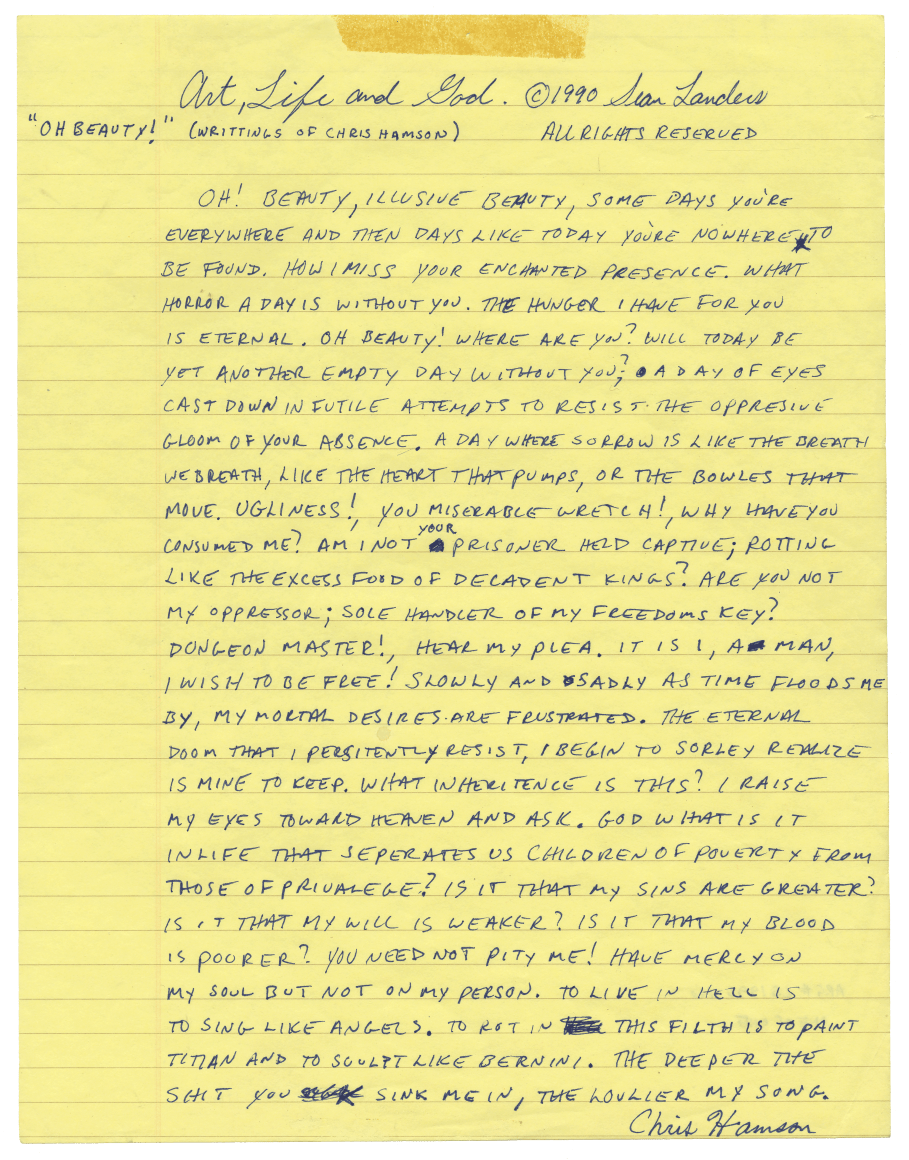 Art, Life and God. ©1990 Sean Landers
"OH BEAUTY!" (WRITTINGS OF CHRIS HAMSON) ALL RIGHTS RESERVED
OH! BEAUTY, ILLUSIVE BEAUTY, SOME DAYS YOU'RE
EVERYWHERE AND THEN DAYS LIKE TODAY YOU'RE NOWHERE TO
BE FOUND. HOW I MISS YOUR ENCHANTED PRESENCE. WHAT
HORROR A DAY IS WITHOUT YOU. THE HUNGER I HAVE FOR YOU
IS ETERNAL. OH BEAUTY! WHERE ARE YOU? WILL TODAY BE
YET ANOTHER EMPTY DAY WITHOUT YOU?; A DAY OF EYES
CAST DOWN IN FUTILE ATTEMPTS TO RESIST THE OPPRESIVE
GLOOM OF YOUR ABSENCE. A DAY WHERE SORROW IS LIKE THE BREATH
WE BREATH, LIKE THE HEART THAT PUMPS, OR THE BOWLES THAT
MOVE. UGLINESS!, YOU MISERABLE WRETCH!, WHY HAVE YOU
CONSUMED ME? AM I NOT YOUR PRISONER HELD CAPTIVE; ROTTING
LIKE THE EXCESS FOOD OF DECADENT KINGS? ARE YOU NOT
MY OPPRESSOR; SOLE HANDLER OF MY FREEDOMS KEY?
DUNGEON MASTER!, HEAR MY PLEA. IT IS I, A MAN,
I WISH TO BE FREE! SLOWLY AND SADLY AS TIME FLOODS ME
BY, MY MORTAL DESIRES ARE FRUSTRATED. THE ETERNAL
DOOM THAT I PERSITENTLY RESIST, I BEGIN TO SORLEY REALIZE
IS MINE TO KEEP. WHAT INHERITENCE IS THIS? I RAISE
MY EYES TOWARD HEAVEN AND ASK. GOD WHAT IS IT
IN LIFE THAT SEPERATES US CHILDREN OF POVERTY FROM
THOSE OF PRIVALEGE? IS IT THAT MY SINS ARE GREATER?
IS IT THAT MY WILL IS WEAKER? IS IT THAT MY BLOOD
IS POORER? YOU NEED NOT PITY ME! HAVE MERCY ON
MY SOUL BUT NOT ON MY PERSON. TO LIVE IN HELL IS
TO SING LIKE ANGELS. TO ROT IN THIS FILTH IS TO PAINT
TITIAN AND TO SCULPT LIKE BERNINI. THE DEEPER THE
SHIT YOU SINK ME IN, THE LOVLIER MY SONG.
Chris Hamson